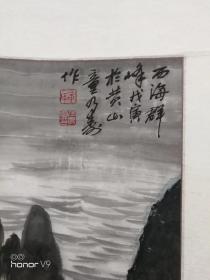 西海群
峰戊寅
於黄山
童乃寿
作
honor V9